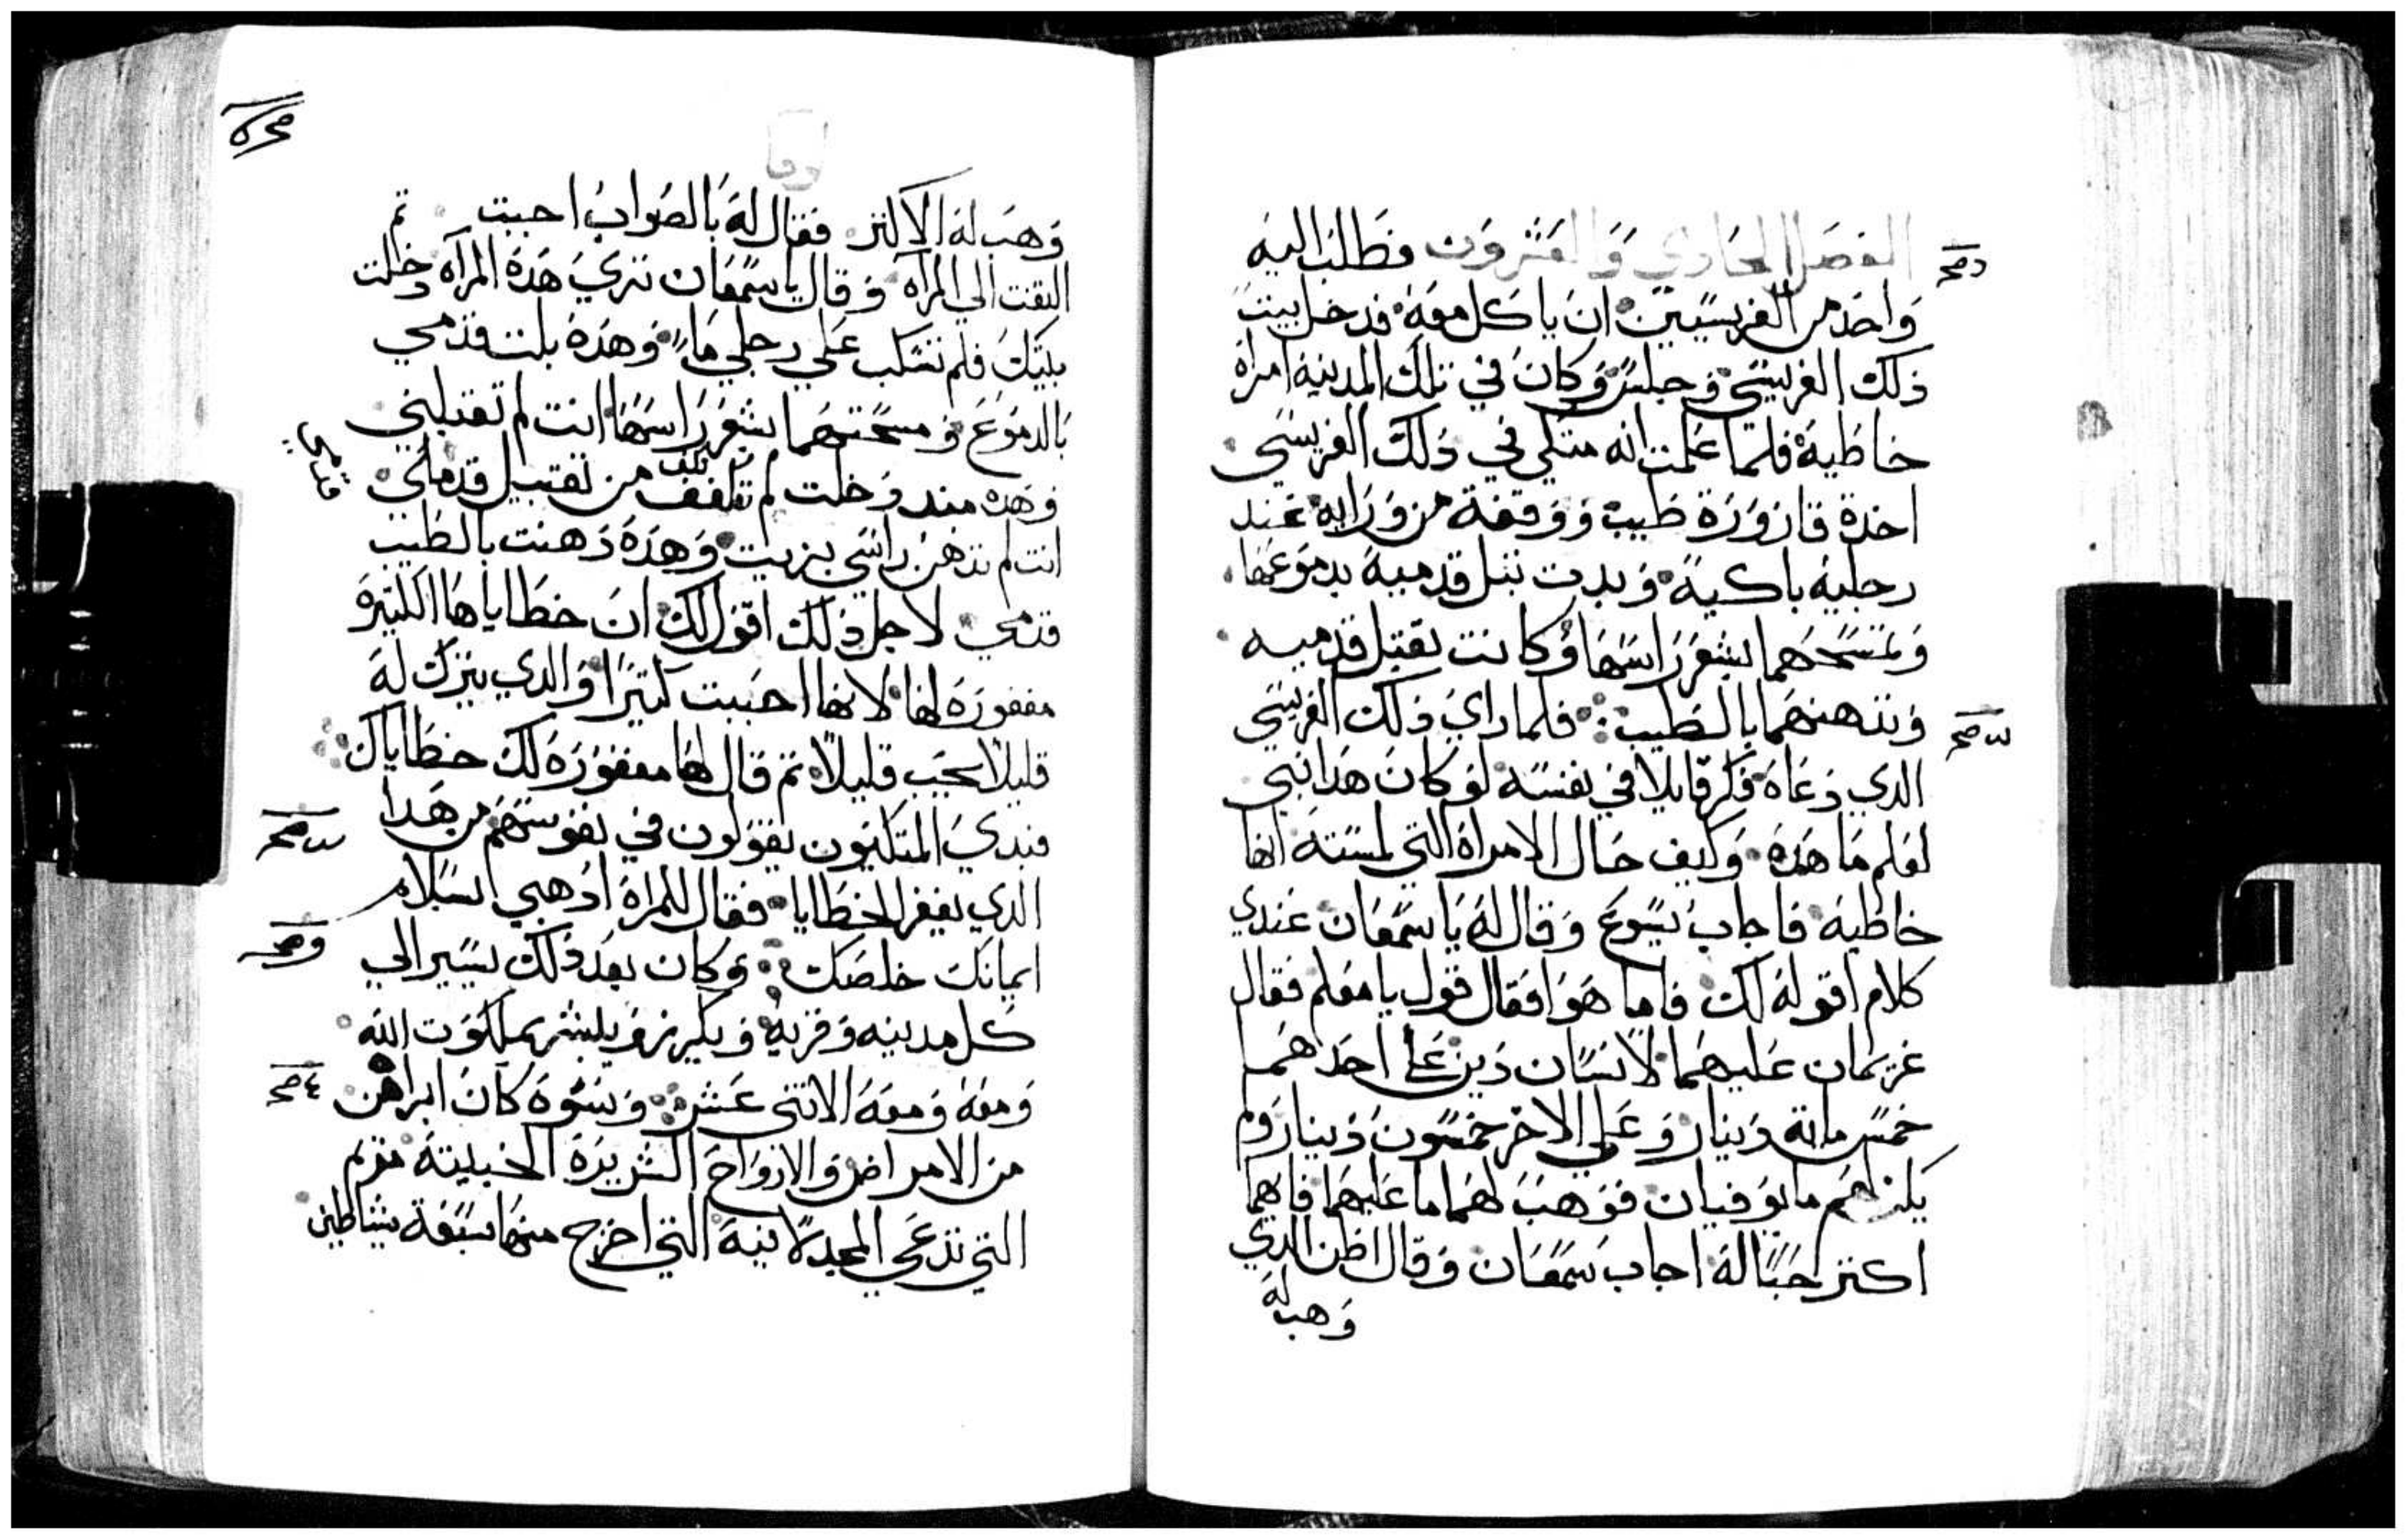 الفصل الحادي والعشرون فطلب اليه
واحد من الفريسيين ان ياكل معه فدخل بيت
ذلك الفريسي وجلس وكان في تلك المدينه امراة
خاطية فلما علمت انه متكي في ذلك الفريسي
اخدة قارورة طيب ووقفة من ورايه عند
رجليه باكية وبدت تبل قدميه بدموعها
وتمسحهما بشعر راسها وكانت تقبل قدميه
وتدهنهما بالطيب فلما راي ذلك الفريسي
الدي دعاه فكر قايلا في نفسه لو كان هدا نبي
لعلم ما هده وكيف حال الامراة التي لمسته انها
خاطيه فاجاب يسوع وقال له يا سمعان عندي
كلام اقوله لك فاما هو فقال قول يا معلم فقال
غريمان عليهما لانسان دين علي احدهما
خمس ماية دينار وعلي الاخر خمسون دينار ولم
يكن لهم ما يوفيان فوهب لهما ما عليهما فايهما
اكتر حبا له اجاب سمعان وقال اظن الدي
وهب له
وهب له الاكتر فقال له بالصواب اجبت تم
التفت الي المرآه وقال يا سمعان تري هده المرآه دخلت
بيتك فلم تسكب علي رجلي ماء وهده بلت قدمي
بالدموع ومسحتهما بشعر راسها انت لم تقبلني
وهده مند دخلت لم تكف من تقبيل قدماي
انت لم تدهن راسي بزيت وهده دهنت بالطيب
قدمي لاجل ذلك اقول لك ان خطاياها الكتيرة
مغفورة لها لانها احببت كتيرا والدي يترك له
قليلا يحب قليلا تم قال لها مغفورة لك خطاياك
فبدي المتكيون يقولون في نفوسهم من هدا
الدي يغفر الخطايا فقال للمراة ادهبي بسلام
ايمانك خلصك وكان بعد ذلك يسير الي
كل مدينه وقريه ويكرز ويبشر بملكوت الله
ومعه ومعه الاتني عشر ونسوة كان ابراهن
من الامراض والارواح الشريرة الخبيتة مريم
التي تدعي المجدلانية التي اخرج منها سبعة شياطين